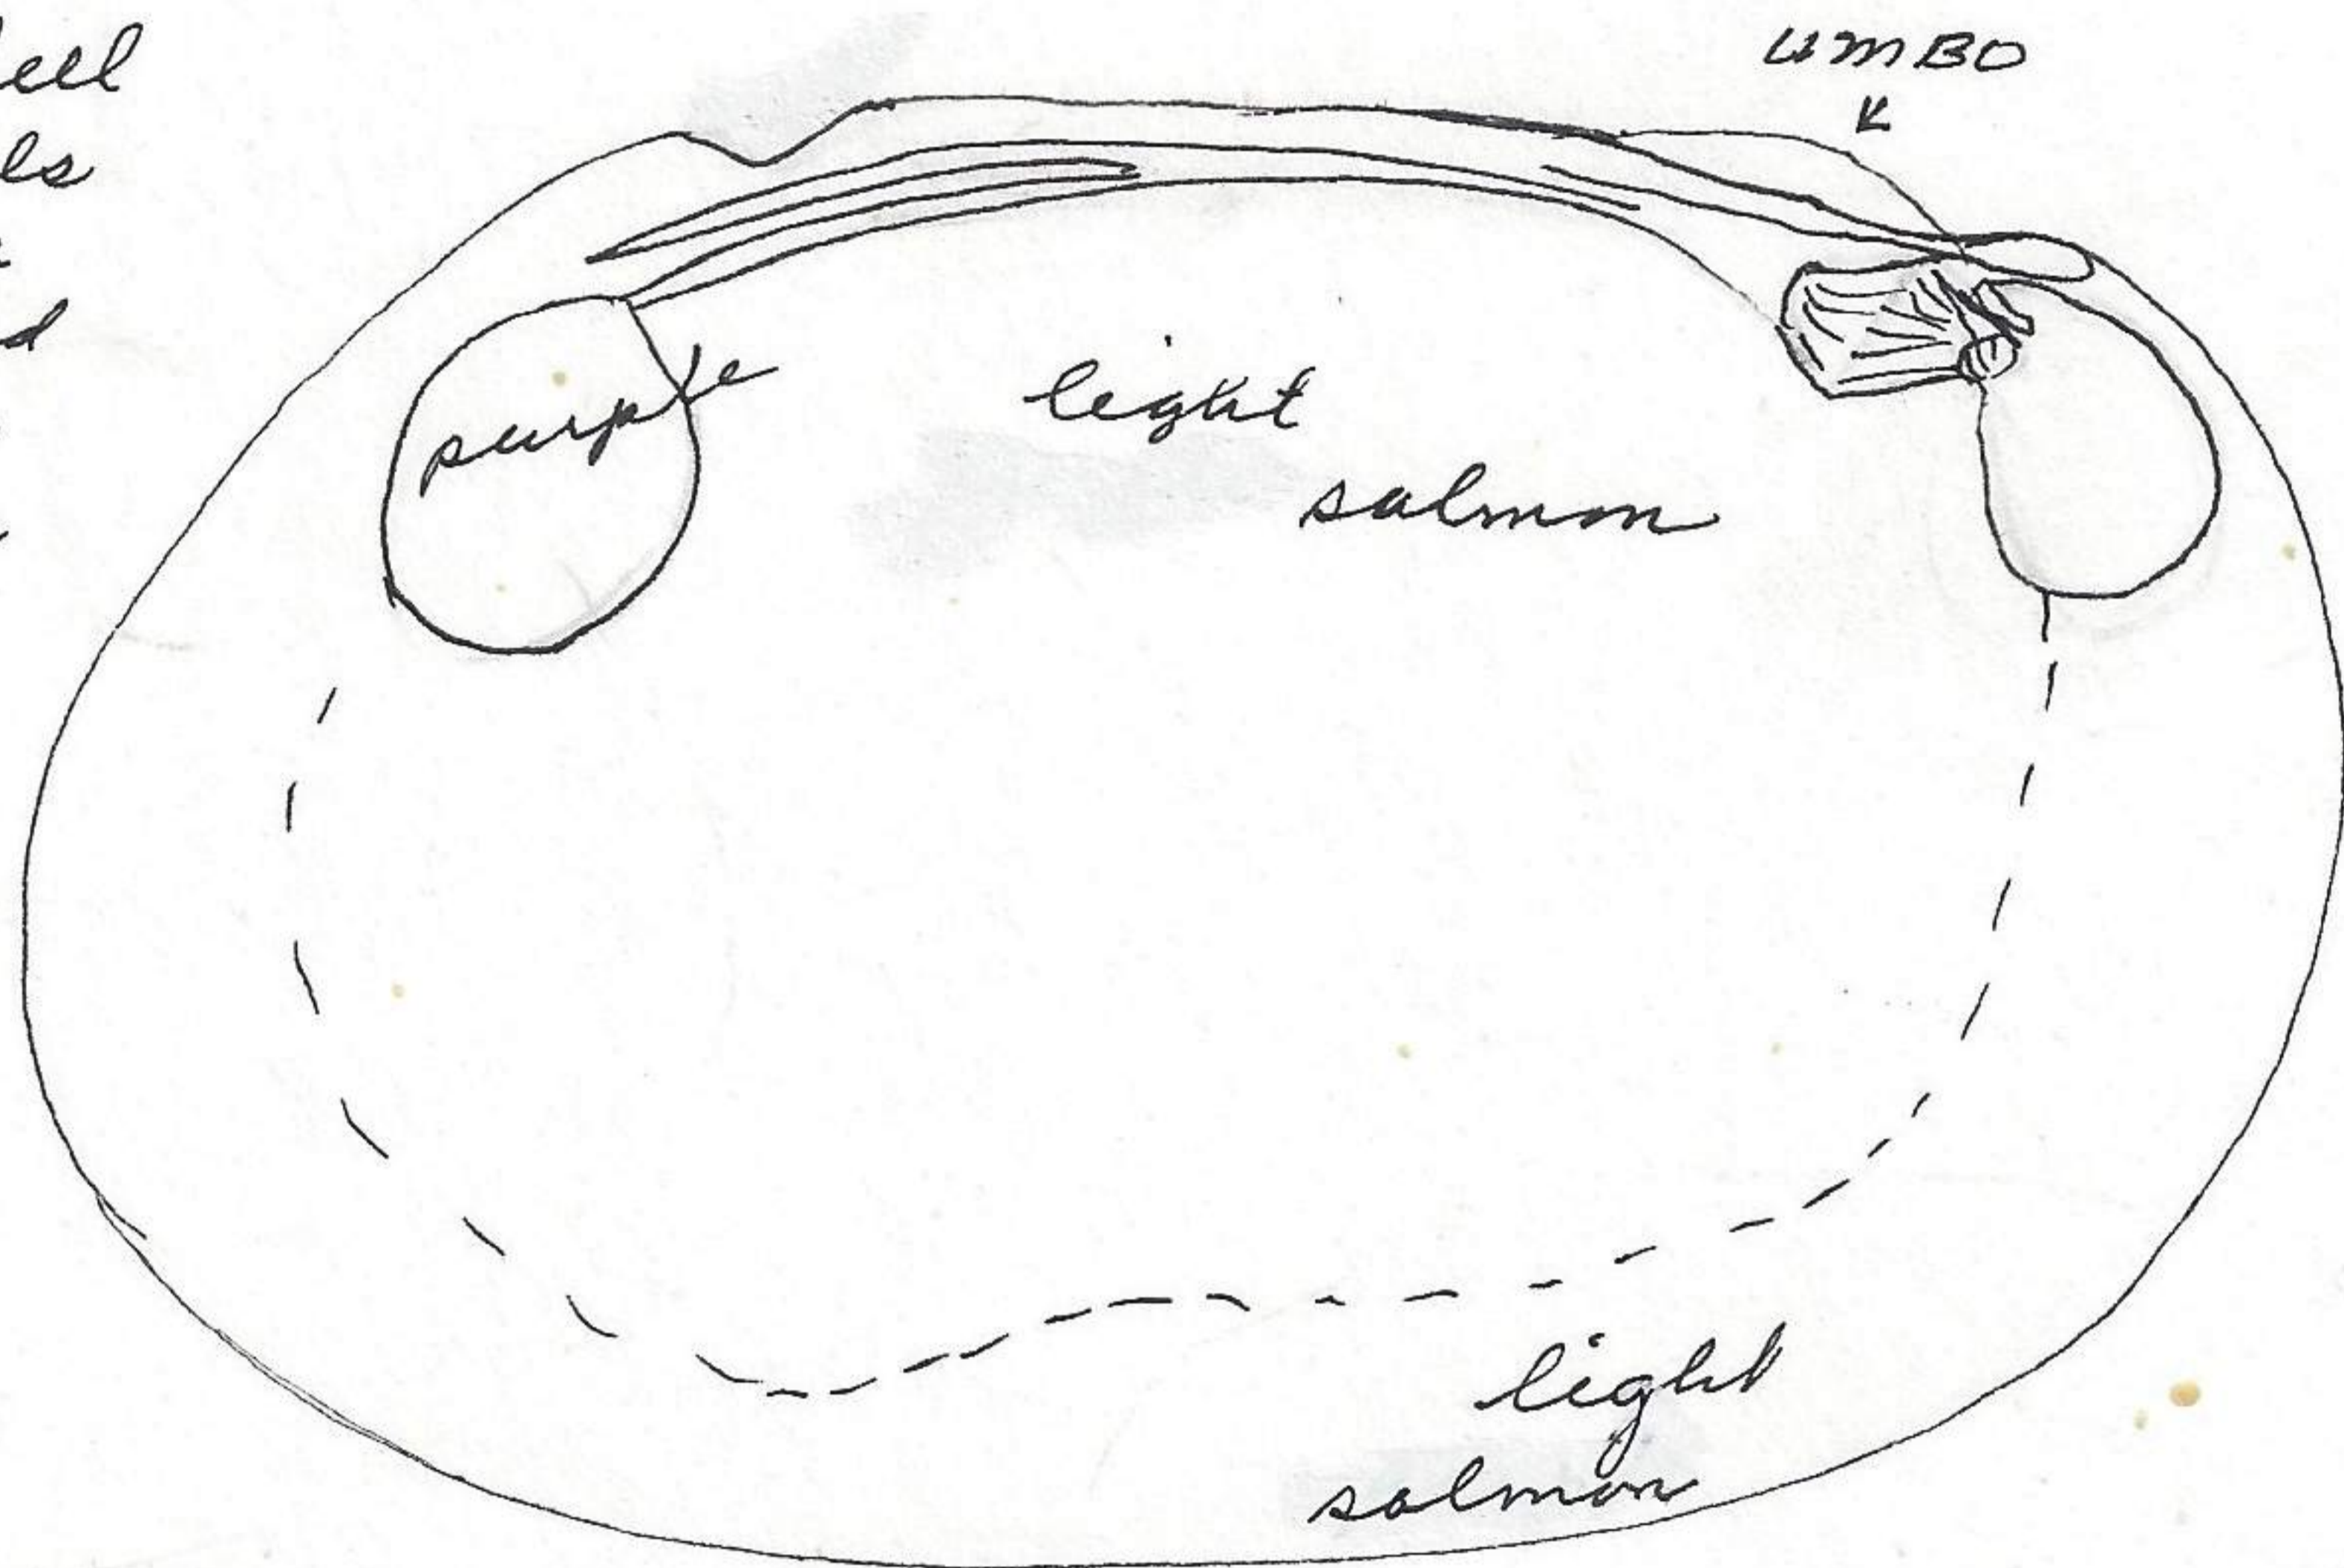 UMBO
purple
light
salmon
light
salmon